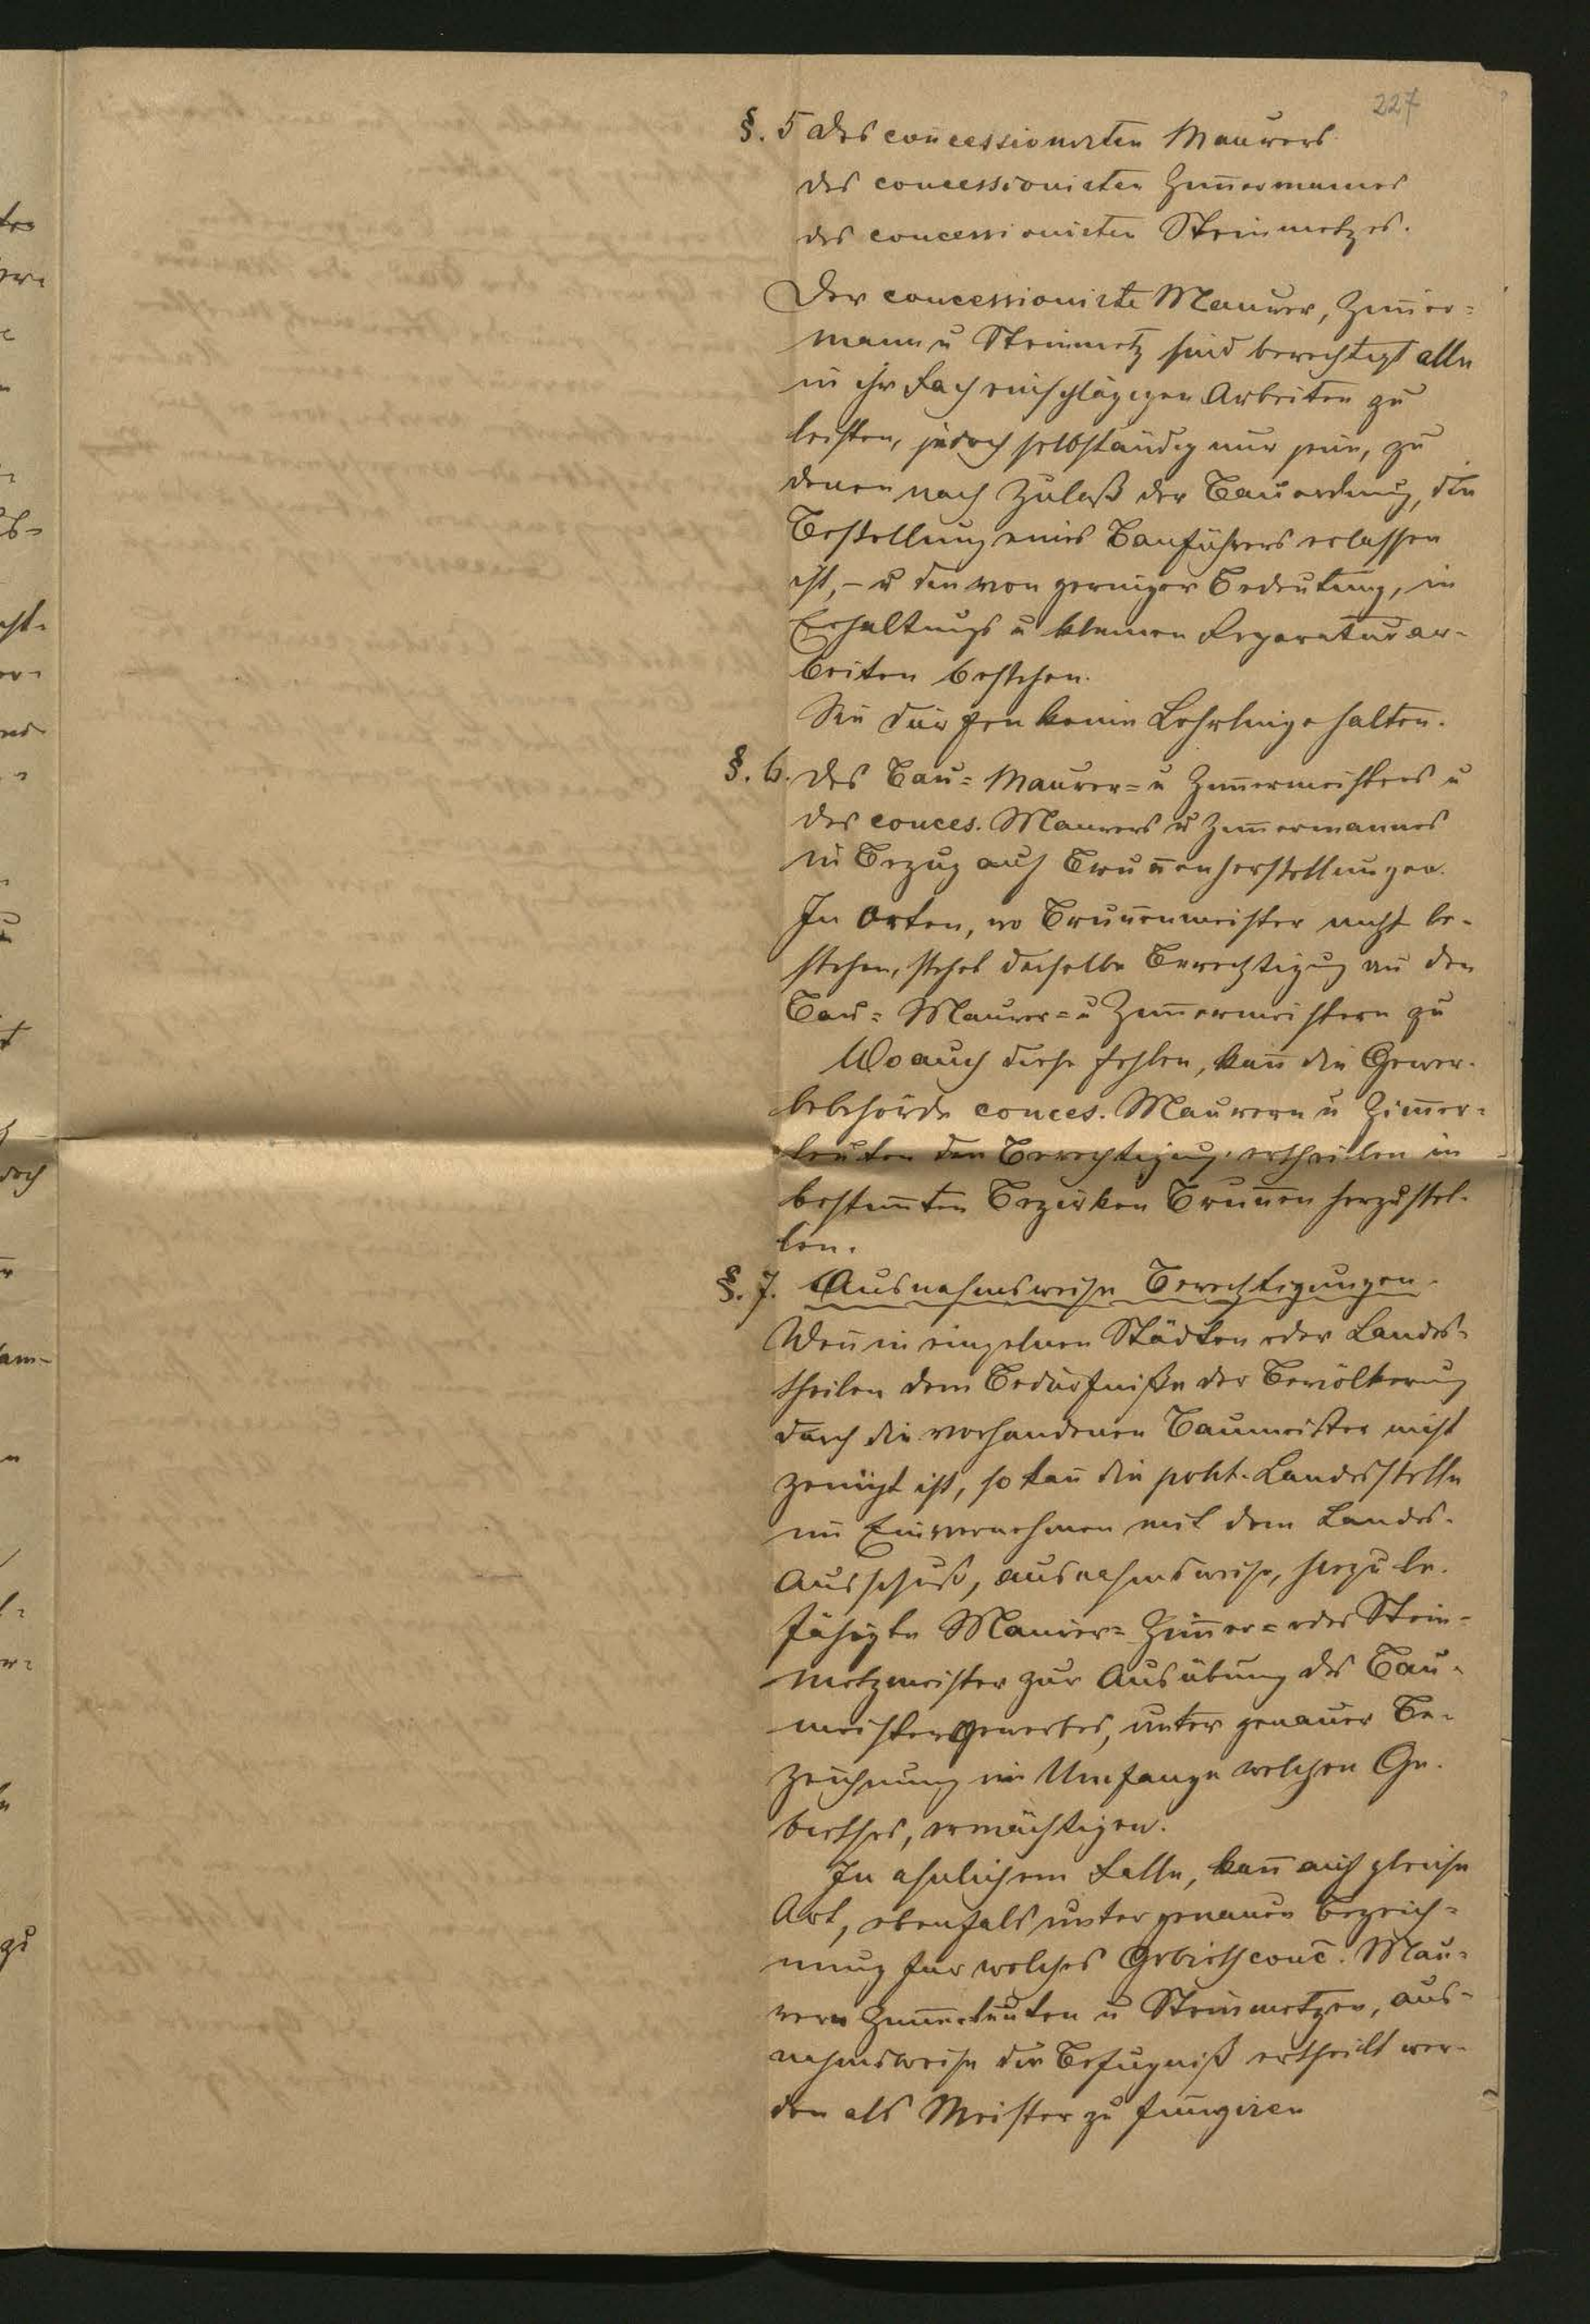 227
§. 5 des concessionirten Maurers
des concessionirten Zim̄ermannes
des concessionirten Steinmetzes.
Der concessionirte Maurer, Zim̄er=
mann u Steinmetz sind berechtigt alle
in ihr Fach einschlägigen Arbeiten zu
leisten, jedoch selbständig nur jene, zu
denen nach Zulaß der Bauordnung, die
Bestellung eines Bauführers erlassen
ist, – u den von geringer Bedeutung, in
Erhaltungs u kleinen Reparaturar-
beiten bestehen.
Sie dürfen keine Lehrlinge halten.
§. 6. des Bau= Maurer= u Zim̄ermeisters u
des conces. Maurers u Zim̄ermannes
in Bezug auf Brun̄enherstellungen.
In Orten, wo Brun̄enmeister nicht be-
stehen, stehet dieselbe Berechtigung den
Bau= Maurer= u Zim̄ermeistern zu
Wo auch diese fehlen, kan̄ die Gewer-
bebehörde conces. Maurern u Zim̄er=
leuten den Berechtigung ertheilen in
bestim̄ten Bezirken Brun̄en herzustel-
len.
§. 7. Ausnahmsweise Berechtigungen.
Wen̄ in einzelnen Städten oder Landes-
theilen dem Bedürfniße der Bevölkerung
durch die vorhandenen Baumeister nicht
genügt ist, so kan̄ die polit. Landesstelle
im Einvernehmen mit dem Landes-
Ausschuß, ausnahmsweise, hiezu be-
fähigte Maurer= Zim̄er= oder Stein-
metzmeister zur Ausübung des Bau-
meistergewerbes, unter genauer Be-
zeichnung im Umfange welchen Ge-
biethes, ermächtigen.
In ähnlichem Falle, kan̄ auf gleiche
Art, ebenfals unter genauer Bezeich=
nung für welches Gebieth conc̄. Mau=
rern Zim̄erleuten u Steinmetzen, aus-
nahmsweise die Befugniß ertheilt wer-
den als Meister zu fungiren